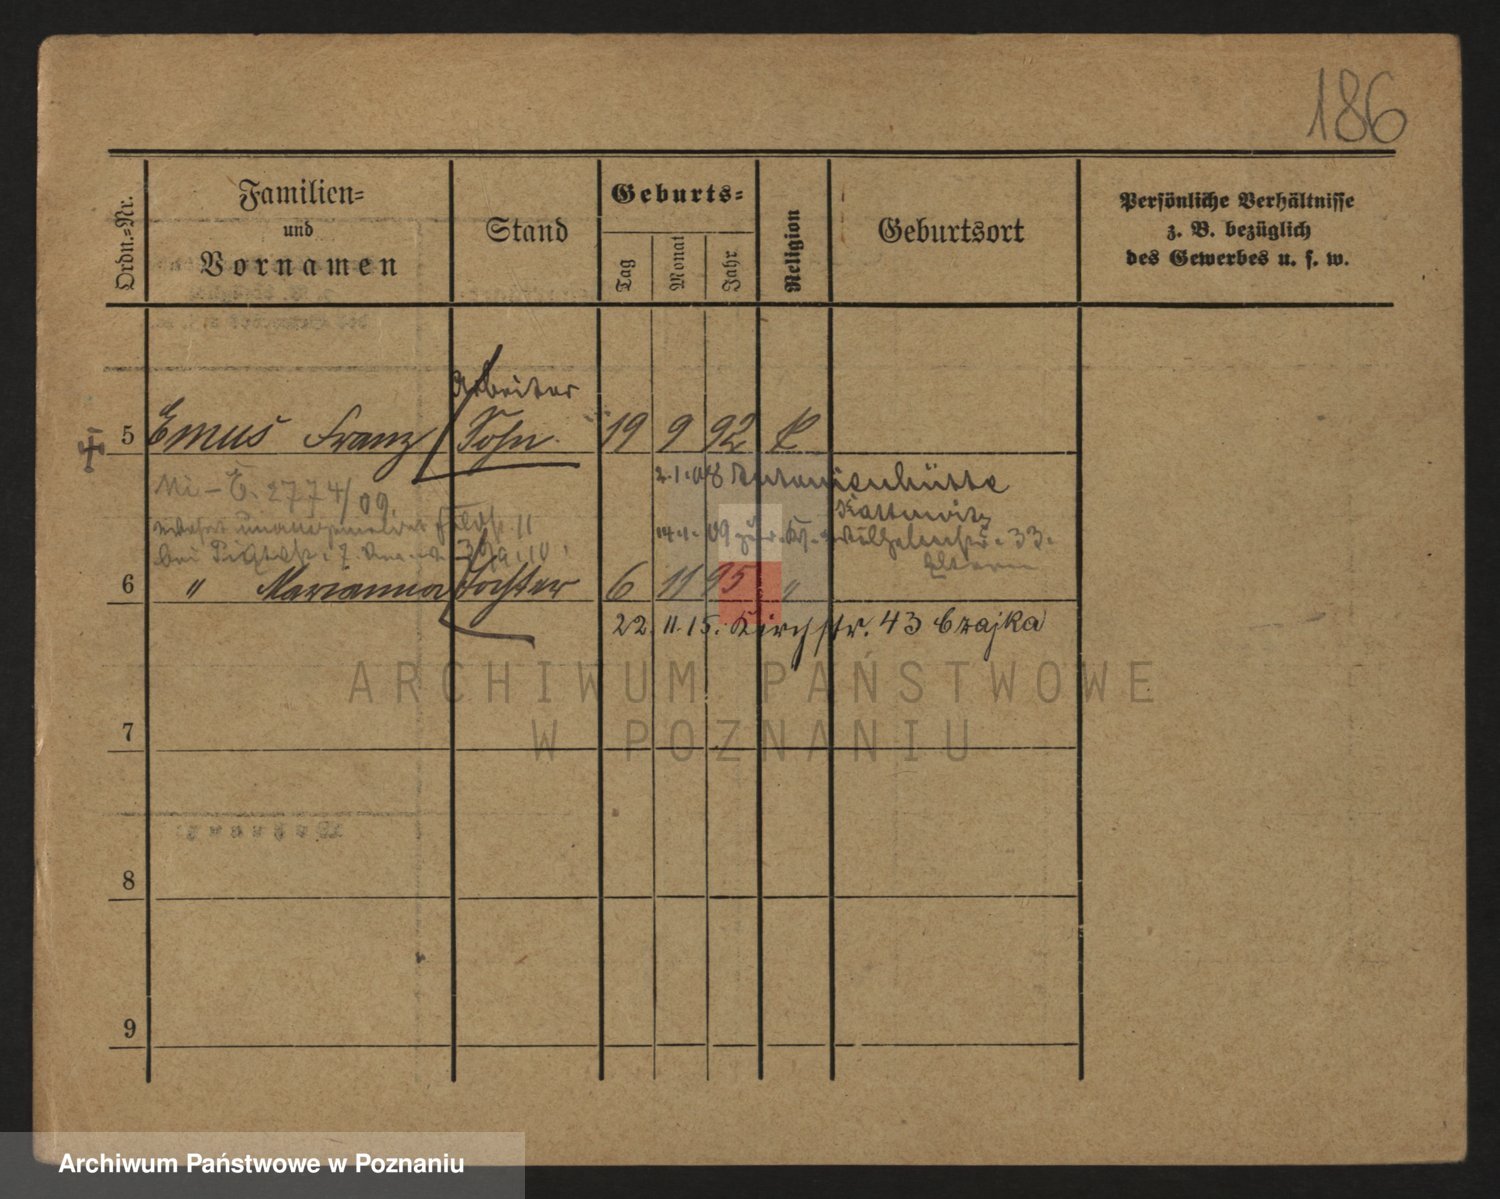 186
Ordn.-Nr.
Familien-
und
Vornamen
Stand
Geburts-
Tag
Monat
Jahr
Religion
Geburtsort
Persönliche Verhältnisse
z. B. bezüglich
des Gewerbes u. s. w.
Arbeiter
5 Emus Franz Sohn 19 9 92 K
2.1.08 Antonienhütte
Mi-E. 2774/09.
Kattowitz
14.1.09 Wilhelmstr. 33.
Eltern
6 " Marianna Tochter 6 11 95 "
22.11.15. Kirchstr. 43 Czajka
ARCHIWUM PAŃSTWOWE
W POZNANIU
7
8
9
Archiwum Państwowe w Poznaniu